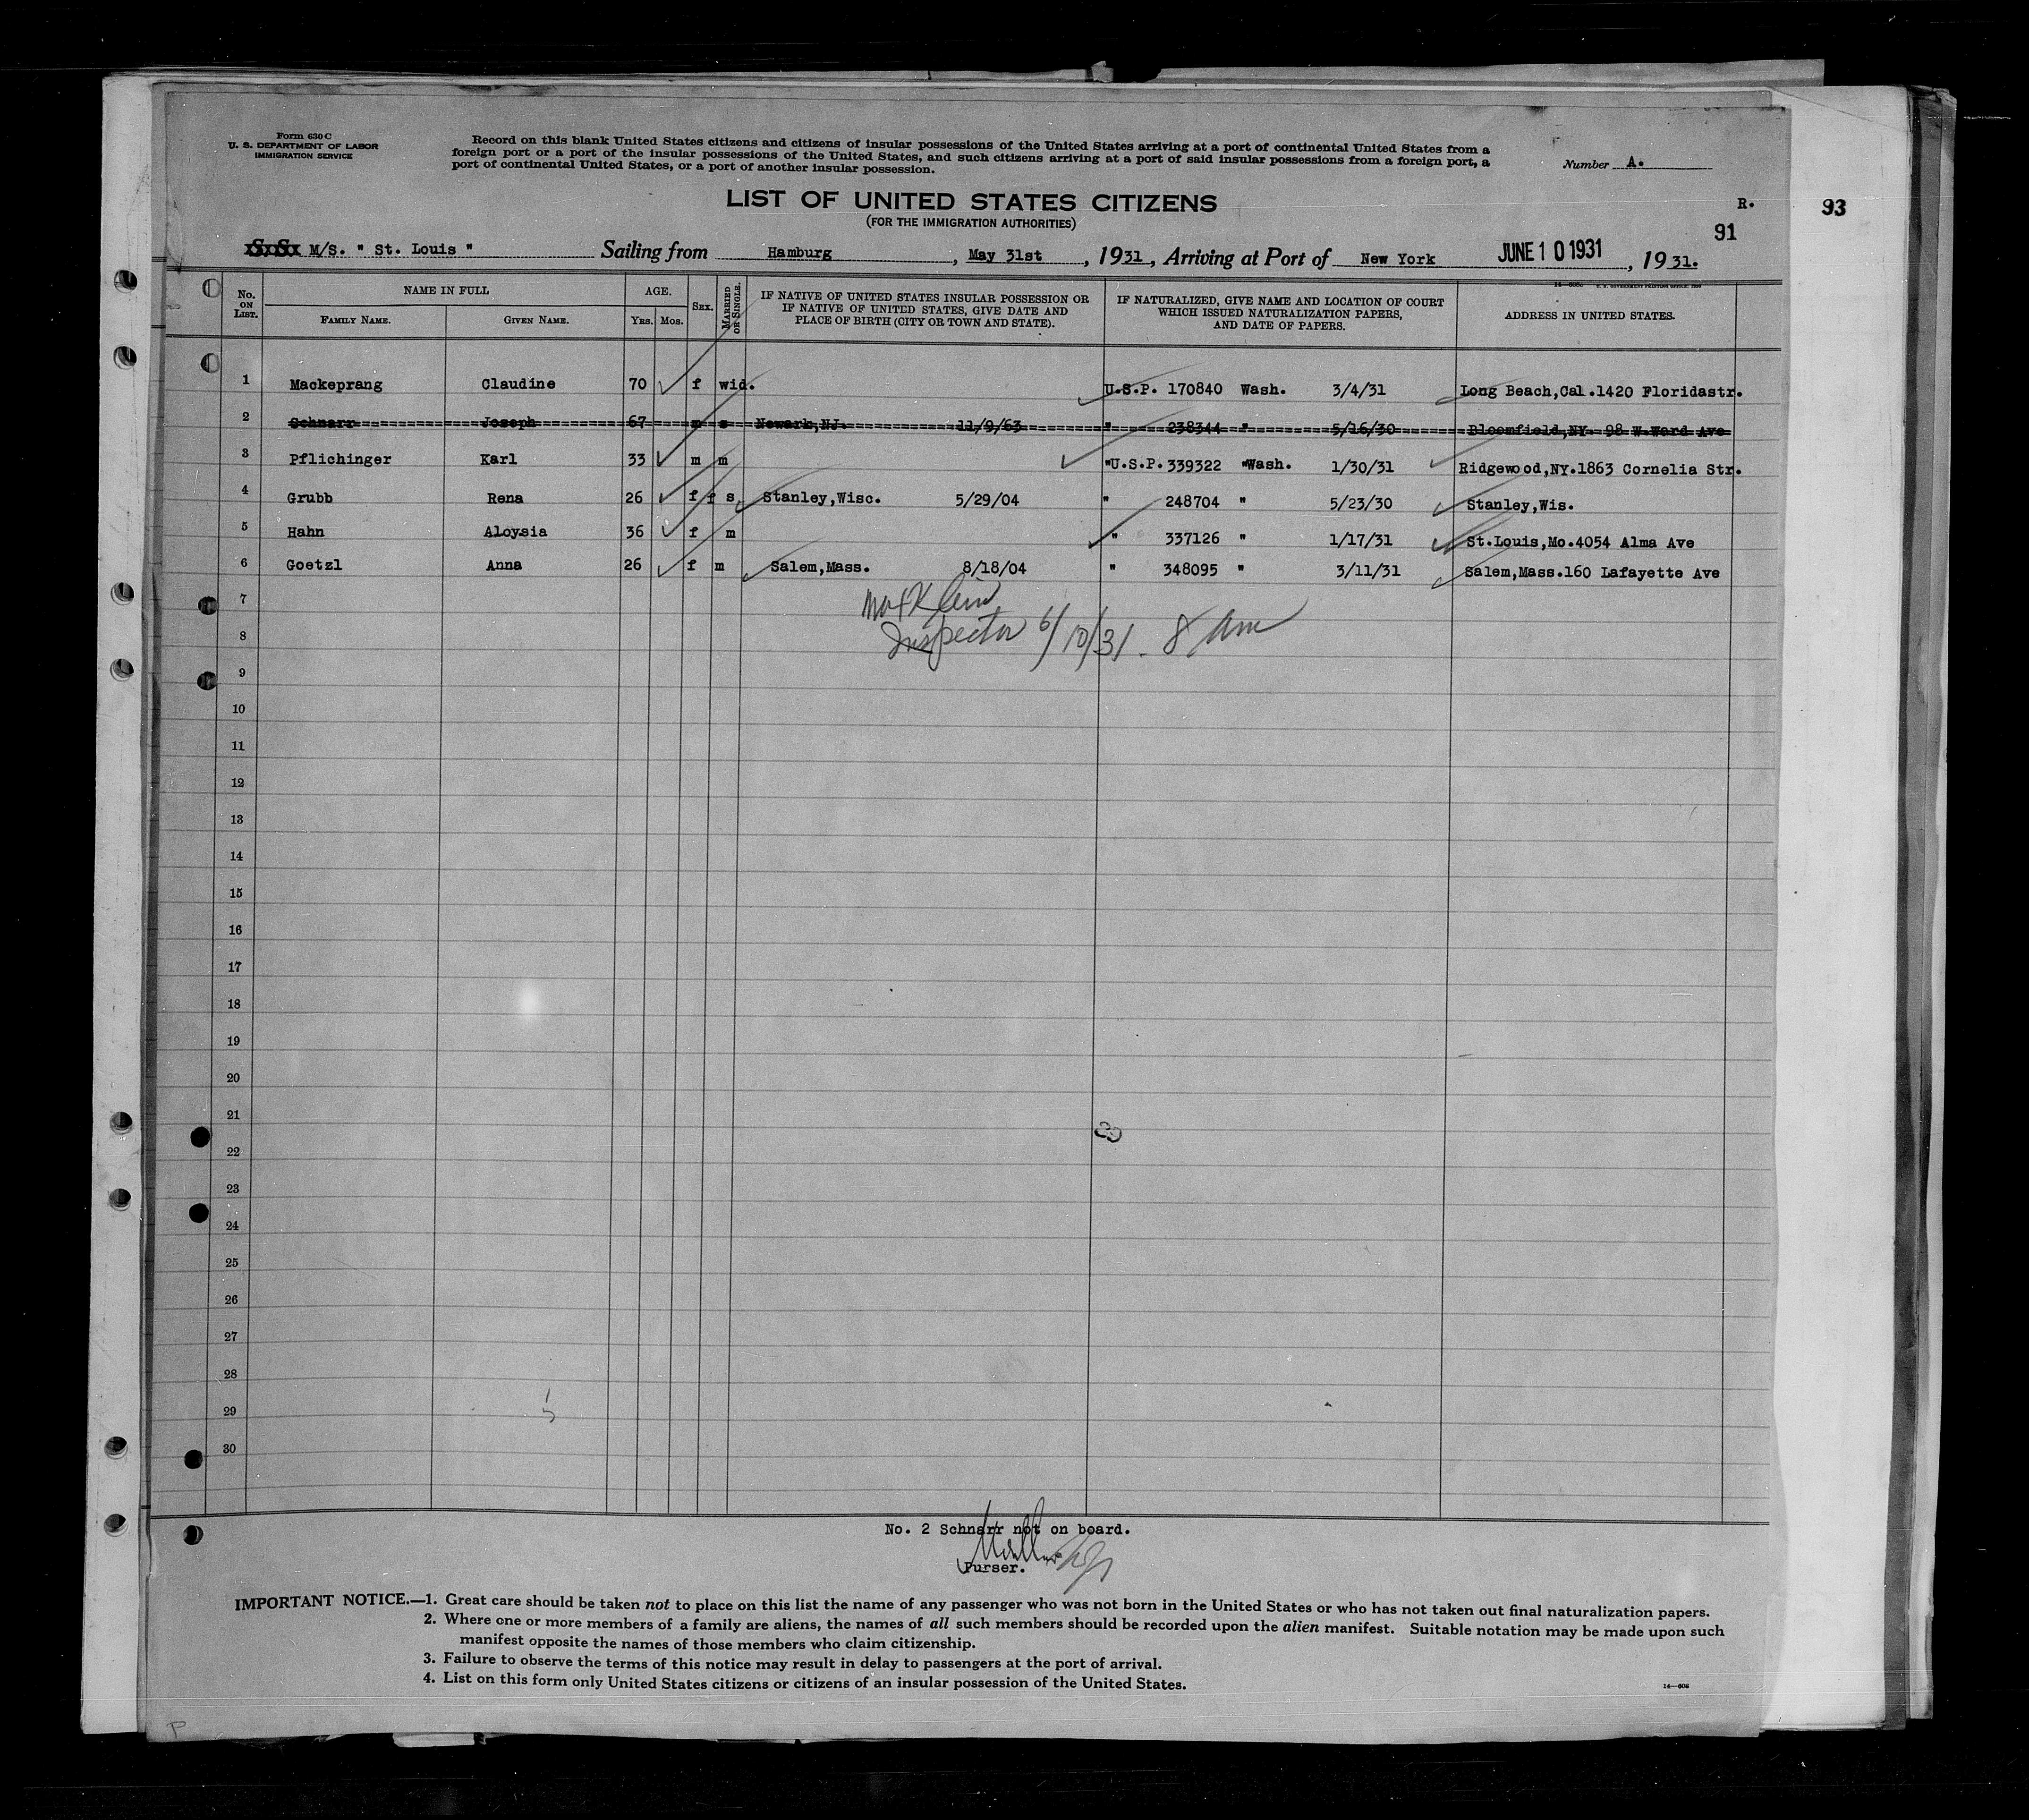 Form 630 C
U. S. DEPARTMENT OF LABOR
IMMIGRATION SERVICE
Record on this blank United States citizens and citizens of insular possessions of the United States arriving at a port of continental United States from a
foreign port or a port of the insular possessions of the United States, and such citizens arriving at a port of said insular possessions from a foreign port, a
port of continental United States, or a port of another insular possession.
Number A.
LIST OF UNITED STATES CITIZENS
(FOR THE IMMIGRATION AUTHORITIES)
R.
93
91
S. S. M/S. " St. Louis " Sailing from Hamburg, May 31st, 1931, Arriving at Port of New York JUNE 10 1931, 1931.
No. ON LIST. NAME IN FULL FAMILY NAME. GIVEN NAME. AGE. YRS. MOS. SEX. MARRIED OR SINGLE. IF NATIVE OF UNITED STATES INSULAR POSSESSION OR IF NATIVE OF UNITED STATES, GIVE DATE AND PLACE OF BIRTH (CITY OR TOWN AND STATE). IF NATURALIZED, GIVE NAME AND LOCATION OF COURT WHICH ISSUED NATURALIZATION PAPERS, AND DATE OF PAPERS. ADDRESS IN UNITED STATES.
1 Mackeprang Claudine 70 f wid. U.S.P. 170840 Wash. 3/4/31 Long Beach,Cal.1420 Floridastr.
2 Schnarr Joseph 67 m s Newark,NJ. 11/9/63 " 238344 " 5/16/30 Bloomfield,NY. 98 W.Word Ave
3 Pflichinger Karl 33 m m "U.S.P. 339322 "Wash. 1/30/31 Ridgewood,NY.1863 Cornelia Str.
4 Grubb Rena 26 f f s Stanley,Wisc. 5/29/04 " 248704 " 5/23/30 Stanley,Wis.
5 Hahn Aloysia 36 f m " 337126 " 1/17/31 St.Louis,Mo.4054 Alma Ave
6 Goetzl Anna 26 f m Salem,Mass. 8/18/04 " 348095 " 3/11/31 Salem,Mass.160 Lafayette Ave
7
Max Klein
8
Inspector 6/10/31. 8 am
9
10
11
12
13
14
15
16
17
18
19
20
21
22
23
24
25
26
27
28
29
30
No. 2 Schnarr not on board.
Purser.
IMPORTANT NOTICE.—1. Great care should be taken not to place on this list the name of any passenger who was not born in the United States or who has not taken out final naturalization papers.
2. Where one or more members of a family are aliens, the names of all such members should be recorded upon the alien manifest. Suitable notation may be made upon such
manifest opposite the names of those members who claim citizenship.
3. Failure to observe the terms of this notice may result in delay to passengers at the port of arrival.
4. List on this form only United States citizens or citizens of an insular possession of the United States.
14—608
P